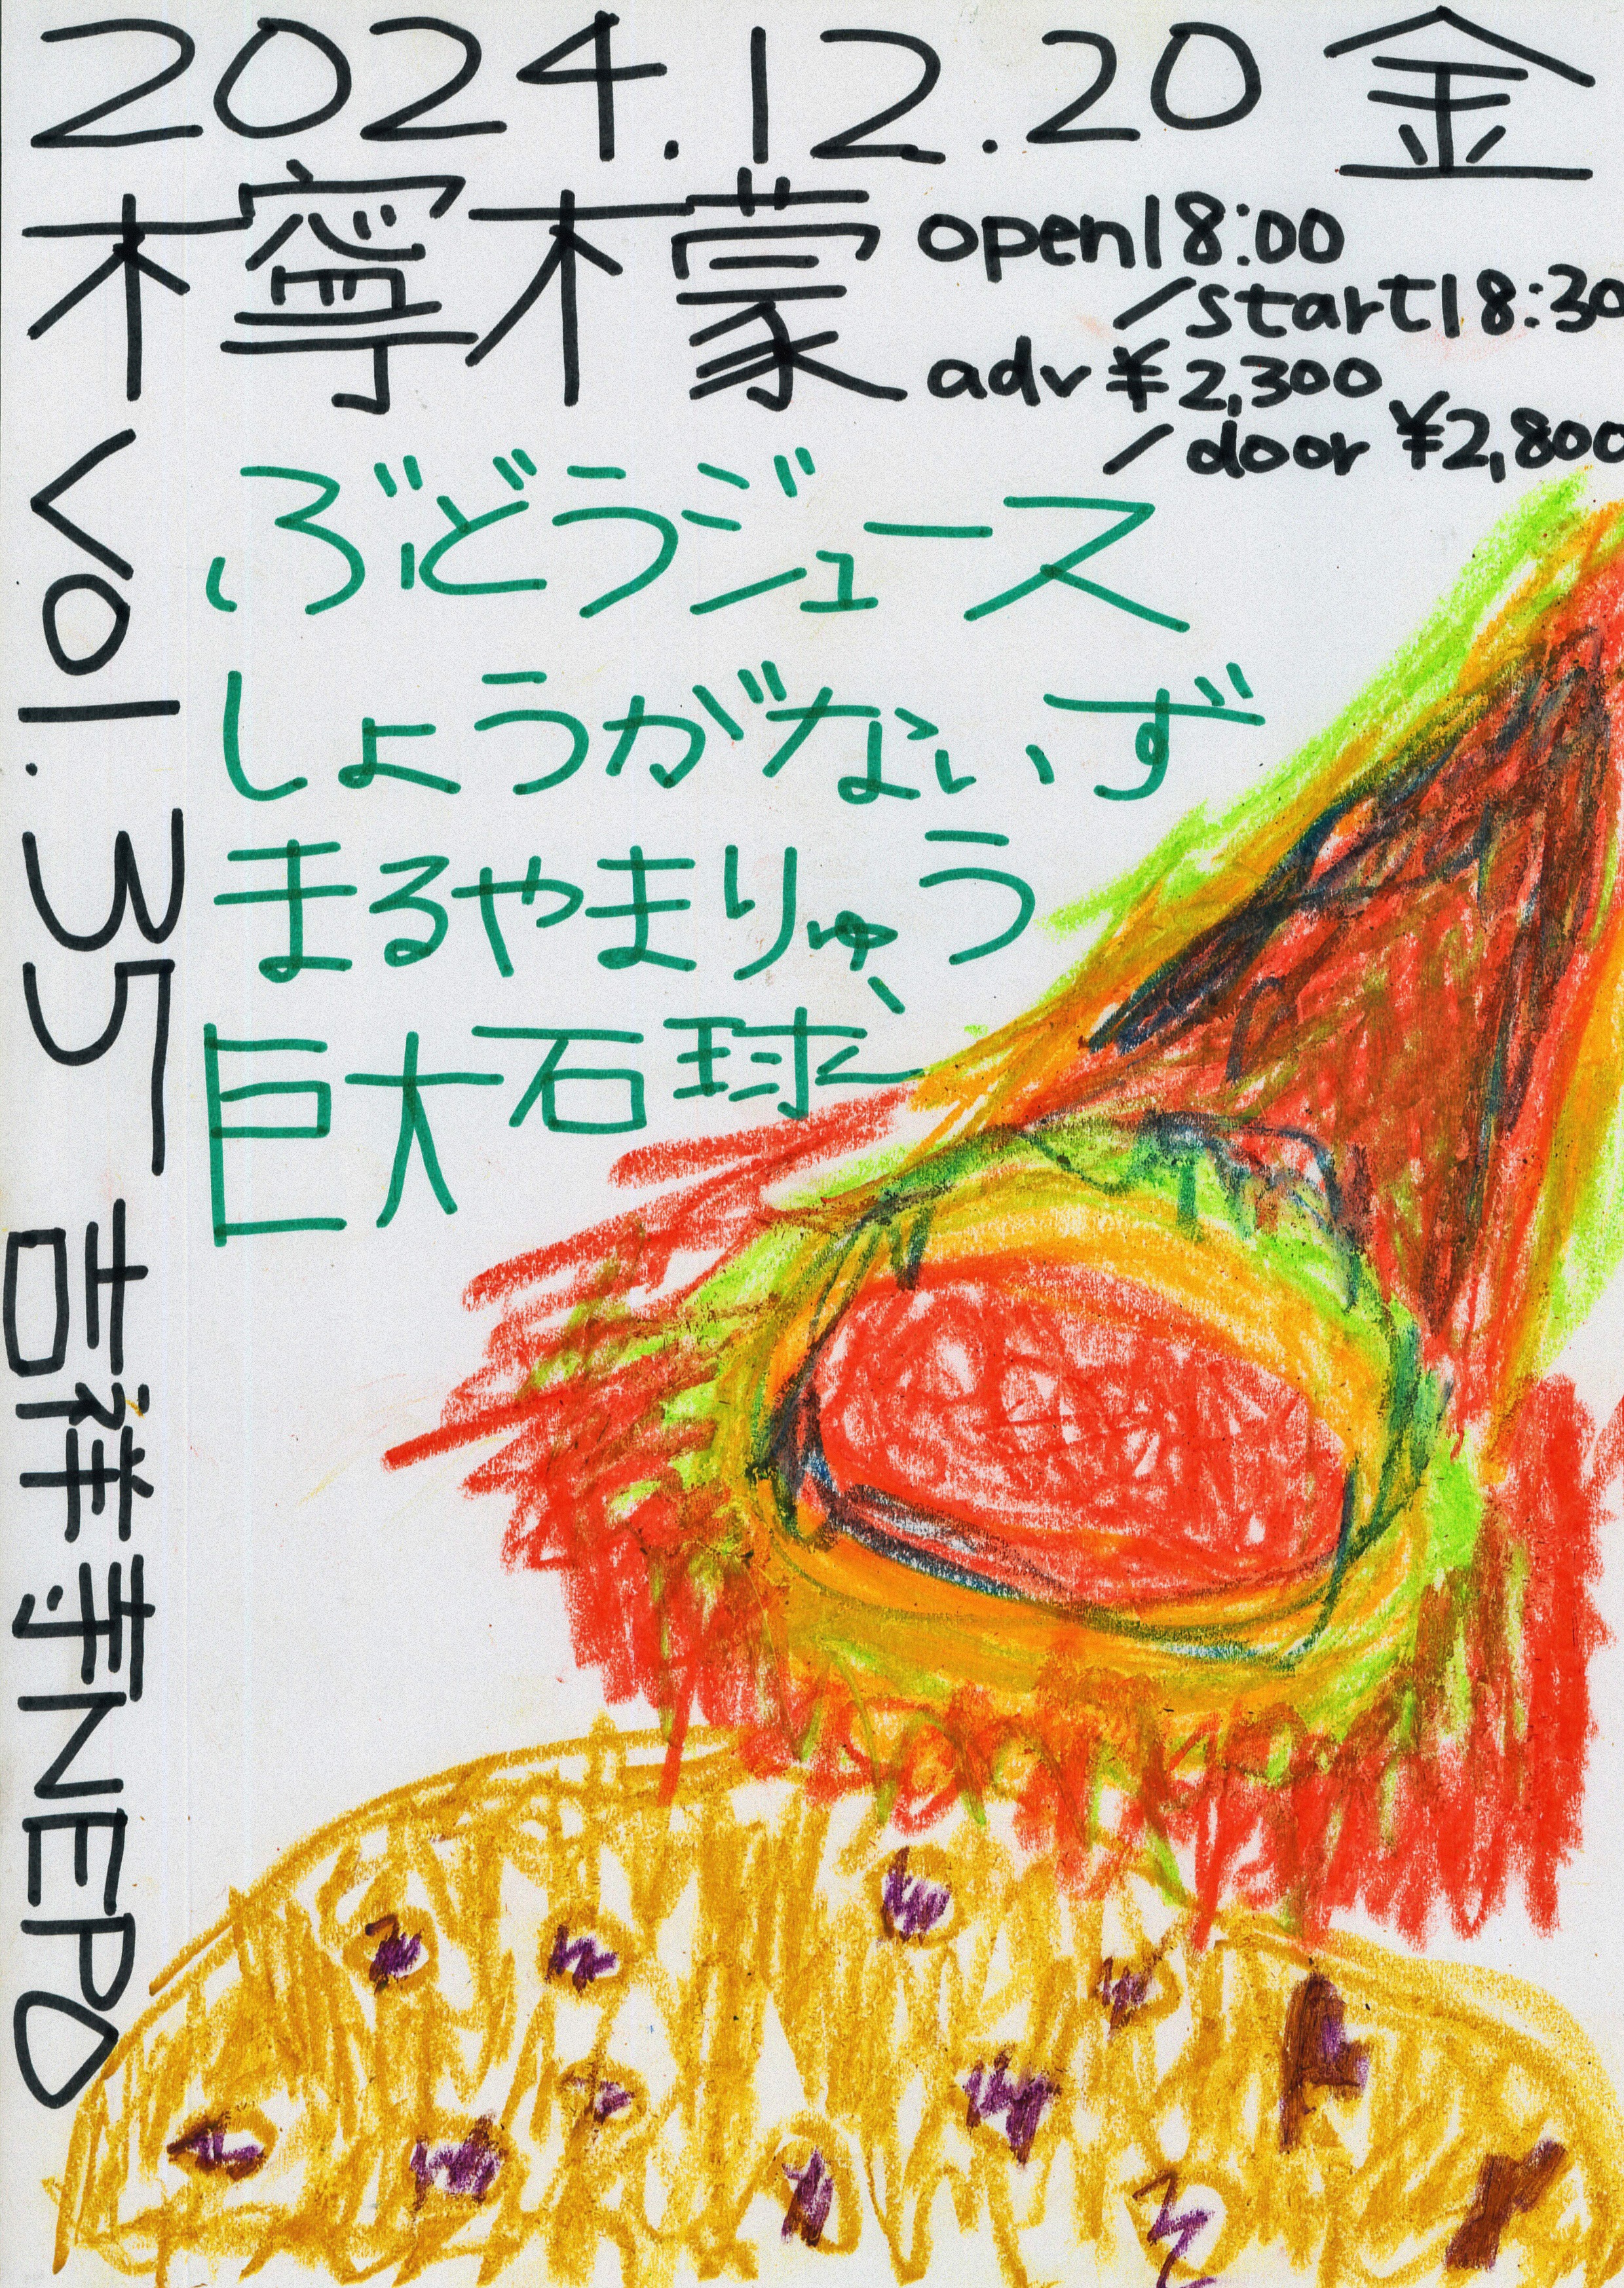 2024.12.20 金
檸檬
open18:00
/start18:30
adv ¥2,300
/door ¥2,800
vol.35 吉祥寺NEPO
ぶどうジュース
しょうがないず
まるやまりゅう
巨大石球